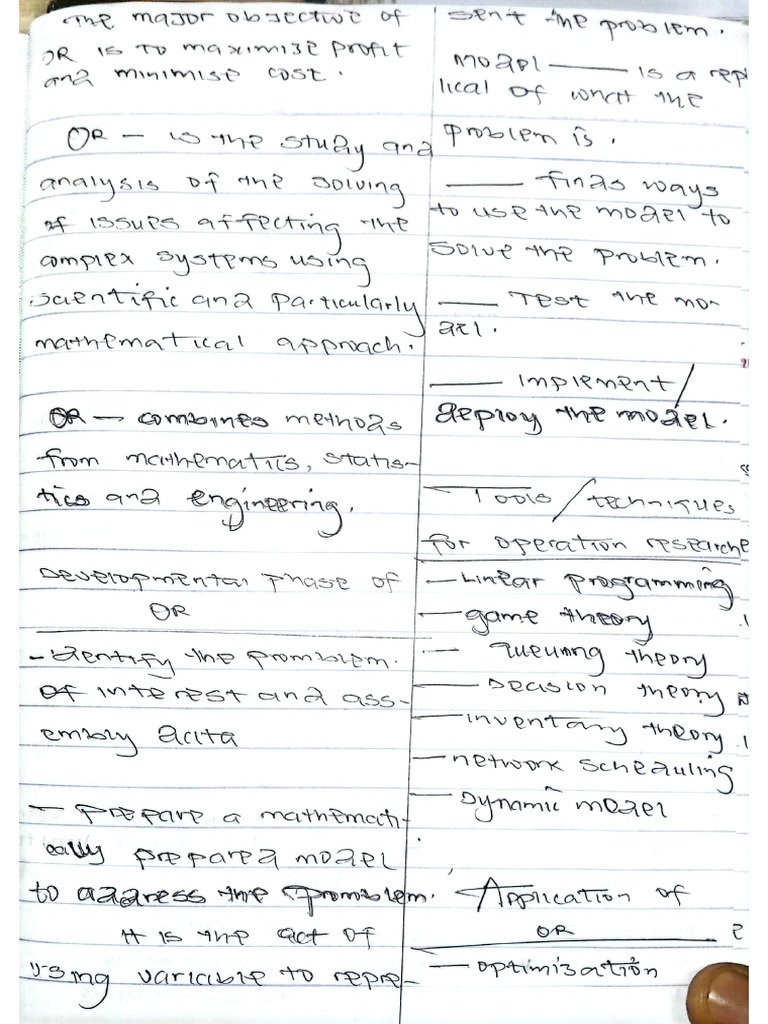 The major objective of
OR is to maximise profit
and minimise cost.
OR – is the study and
analysis of the solving
of issues affecting the
complex systems using
scientific and particularly
mathematical approach.
OR – combines methods
from mathematics, statis-
tics and engineering.
Developmental phase of
OR
- Identify the promblem.
of interest and ass-
embly data
- prepare a mathemati-
cally prepared model
to address the promblem.
It is the act of
using variable to repre-
sent the problem.
Model — is a rep
lical of what the
problem is.
— finds ways
to use the model to
solve the problem.
— Test the mo-
del.
— implement/
deploy the model.
Tools/techniques
for operation researche
— Linear programming
— game theory
— queuing theory
— Decision theory
— inventary theory
— network scheduling
— Dynamic model
Application of
OR
— optimisation